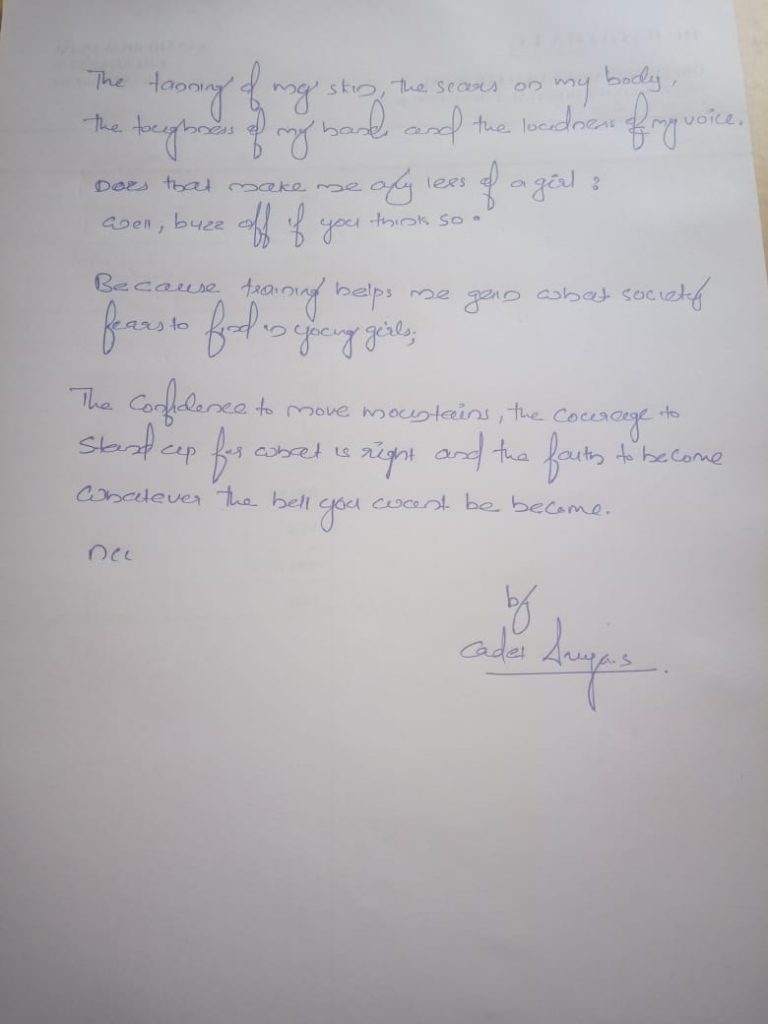 The tanning of my skin, the scars on my body,
the toughness of my hand and the loudness of my voice.
Does that make me any less of a girl ?
Well, buzz off if you think so.
Because training helps me gain what society
fears to find in young girls;
The Confidence to move mountains, the courage to
Stand up for what is right and the faith to become
whatever the hell you want be become.
ncc
by
Cadet